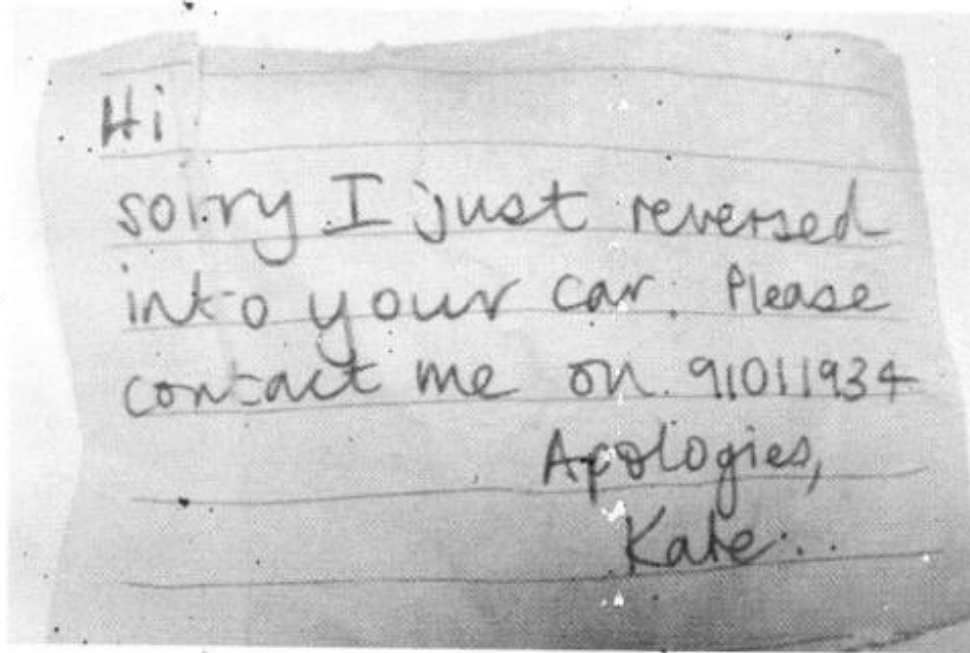 Hi
sorry I just reversed
into your car. Please
contact me on 91011934
Apologies,
Kate.